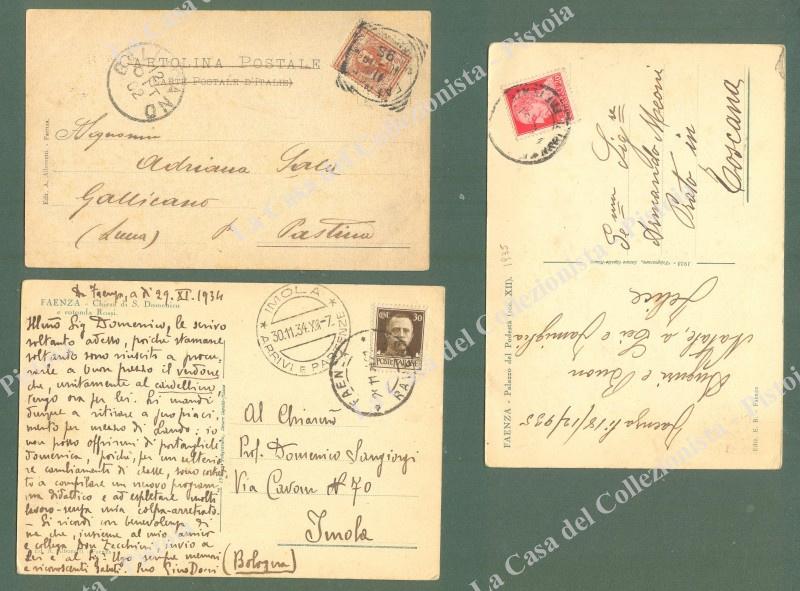 CARTOLINA POSTALE
(CARTE POSTALE D'ITALIE)
GALLICANO
12 OTT 02
95
Edit. A. Albonetti - Faenza.
Signorina
Adriana
Gallicano
(Lucca) p. Pastino
Da Faenza, a dì 29.XI.1934
FAENZA - Chiesa di S. Domenico
e rotonda Rossi.
Illmo Sig Domenico, le scrivo
soltanto adesso, poichè stamane
soltanto sono riuscito a procu-
rarle a buon prezzo il verdone
che, unitamente al cardellino,
tengo ora per lei. Li mandi
dunque a ritirare a suo piaci-
mento per mezzo di Lando; io
non posso offrirmi di portarglieli
domenica, poichè, per un ulterio-
re cambiamento di classe, sono costretto
a compilare un nuovo program-
ma didattico e ad espletare molto
lavoro - senza mia colpa - arretrato.
- Si ricordi con benevolenza di
me che, insieme al mio amico
e collega Don Zecchini, invio a
Lei e al Sig. Ugo sempre memori
e riconoscenti saluti. Suo Gino
IMOLA
30.11.34.XIII-7.
* ARRIVI E PARTENZE *
CENT 30
POSTE ITALIANE
FAENZA
Al Chiarmo
Prof. Domenico Sangiorgi
Via Cavour N° 70
Imola
(Bologna)
Gemm Sig.
Armando
Prato in
Toscana
1935
FAENZA - Palazzo del Podestà (sec. XII).
Ediz. E. R. - Faenza
Faenza li 18/12/935
Auguri e Buon
Natale, a Lei e famiglia
Felice
La Casa del Collezionista - Pistoia